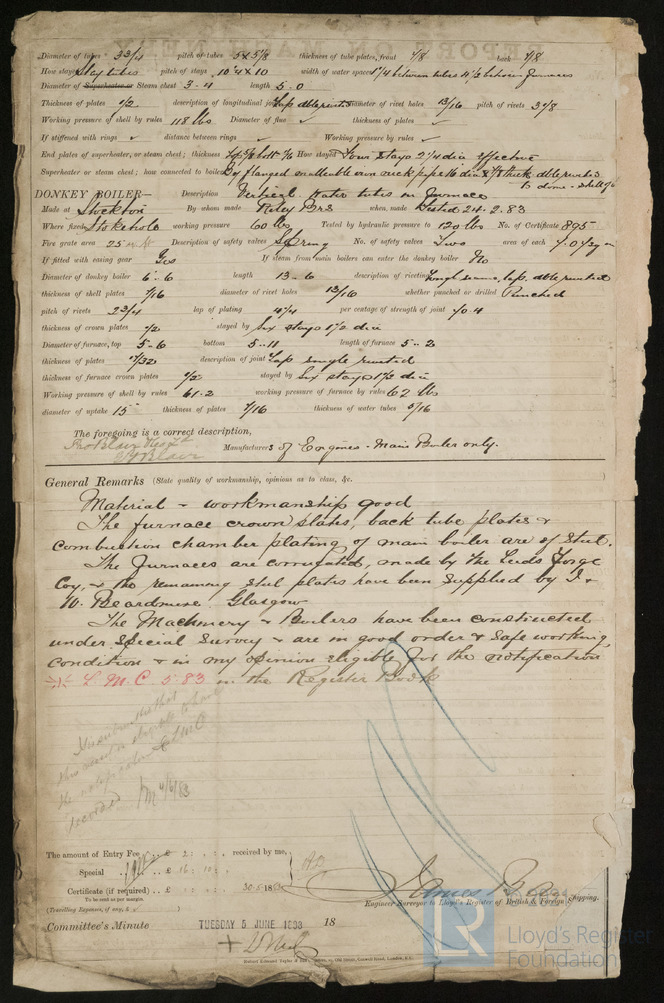 Diameter of tubes 3 3/4 pitch of tubes 5 x 5 1/8 thickness of tube plates, front 7/8 back 7/8
How stayed Stay tubes pitch of stays 10 1/4 x 10 width of water spaces 1 1/4 between tubes between furnaces
Diameter of Superheater or Steam chest 3-4 length 5-0
Thickness of plates 1/2 description of longitudinal joint Lap dble riveted diameter of rivet holes 13/16 pitch of rivets 3 1/8
Working pressure of shell by rules 118 lbs Diameter of flue ✓ thickness of plates ✓
If stiffened with rings ✓ distance between rings ✓ Working pressure by rules ✓
End plates of superheater, or steam chest; thickness How stayed Four stays 2 1/4 dia effective
Superheater or steam chest; how connected to boiler By flanged malleable iron neck pipe 16 dia thick dble riveted
to dome & shell
DONKEY BOILER— Description Vertical water tubes in furnace
Made at Stockton By whom made Riley Brs when made Tested 24.2.83
Where fixed Stokehole working pressure 60 lbs Tested by hydraulic pressure to 120 lbs No. of Certificate 895
Fire grate area 25 sq ft Description of safety valves Spring No. of safety valves Two area of each 7.07 sq in
If fitted with easing gear Yes If steam from main boilers can enter the donkey boiler No
Diameter of donkey boiler 6-6 length 13-6 description of riveting Longl seams, lap, dble riveted
thickness of shell plates 7/16 diameter of rivet holes 13/16 whether punched or drilled Punched
pitch of rivets 2 3/4 lap of plating 4 1/4 per centage of strength of joint 70.4
thickness of crown plates 1/2 stayed by Six stays 1 1/2 dia
Diameter of furnace, top 5-6 bottom 5-11 length of furnace 5-2
thickness of plates 17/32 description of joint Lap single riveted
thickness of furnace crown plates 1/2 stayed by Six stays 1 1/2 dia
Working pressure of shell by rules 61.2 working pressure of furnace by rules 62 lbs
diameter of uptake 15 thickness of plates 7/16 thickness of water tubes 5/16
The foregoing is a correct description,
Blair
Manufacturers of Engines & Main Boiler only.
General Remarks (State quality of workmanship, opinions as to class, &c.
Material & workmanship good
The furnace crown plates, back tube plates &
combustion chamber plating of main boiler are of steel.
The furnaces are corrugated, made by the Leeds Forge
Coy, & the remaining steel plates have been supplied by
W. Beardmore. Glasgow
The Machinery & Boilers have been constructed
under Special Survey & are in good order & safe working
condition & in my opinion eligible for the notification
L.M.C. 5.83 in the Register Book
It is submitted that
this vessel is eligible to have
the notification LMC
recorded
The amount of Entry Fee .. £ 2 : : received by me,
Special .. £ 16 : 10 :
Certificate (if required) .. £ : : 30.5.1883
To be sent as per margin.
(Travelling Expenses, if any, £ )
Engineer Surveyor to Lloyd's Register of British & Foreign Shipping.
Committee's Minute TUESDAY 5 JUNE 1883 18
LR Lloyd's Register
Foundation